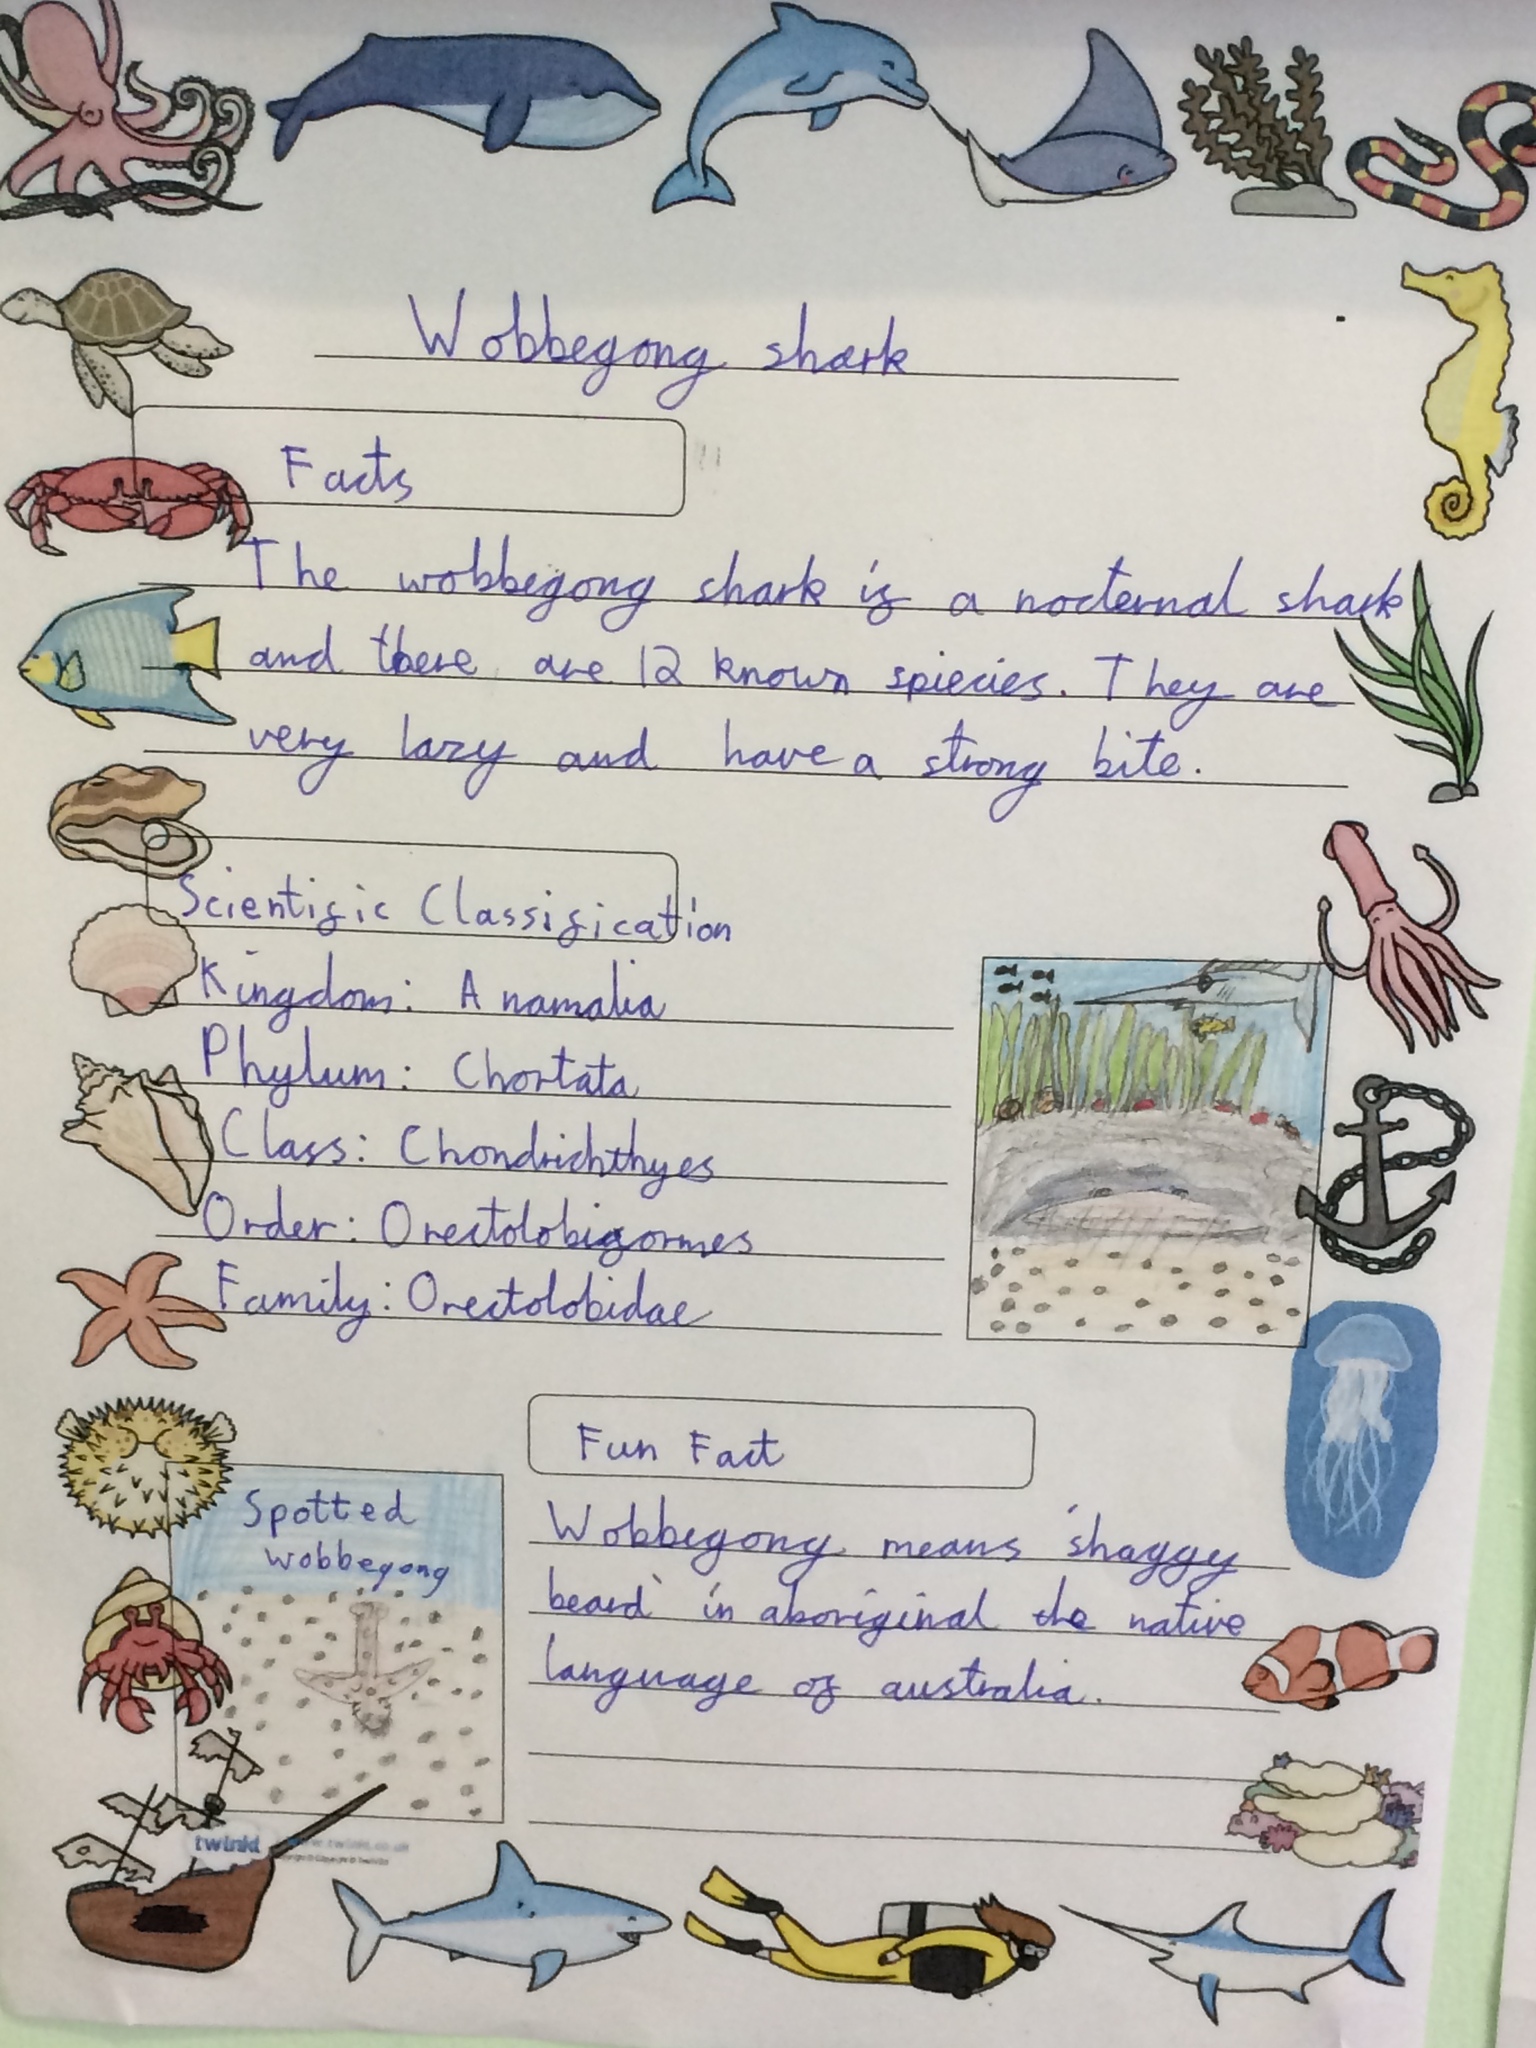 Wobbegong shark
Facts
The wobbegong shark is a nocternal shark
and there are 12 known spiecies. They are
very lazy and have a strong bite.
Scientific Classification
Kingdom: Anamalia
Phylum: Chortata
Class: Chondrichthyes
Order: Orectolobigormes
Family: Orectolobidae
Fun Fact
Spotted
wobbegong
Wobbegong means 'shaggy
beard' in aboriginal the native
language of australia.
twinkl